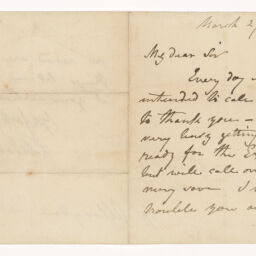 March 2
My dear Sir
Every day
intended to call
to thank you -
very busy getting
ready for the E
but will call on
very soon. I
trouble you